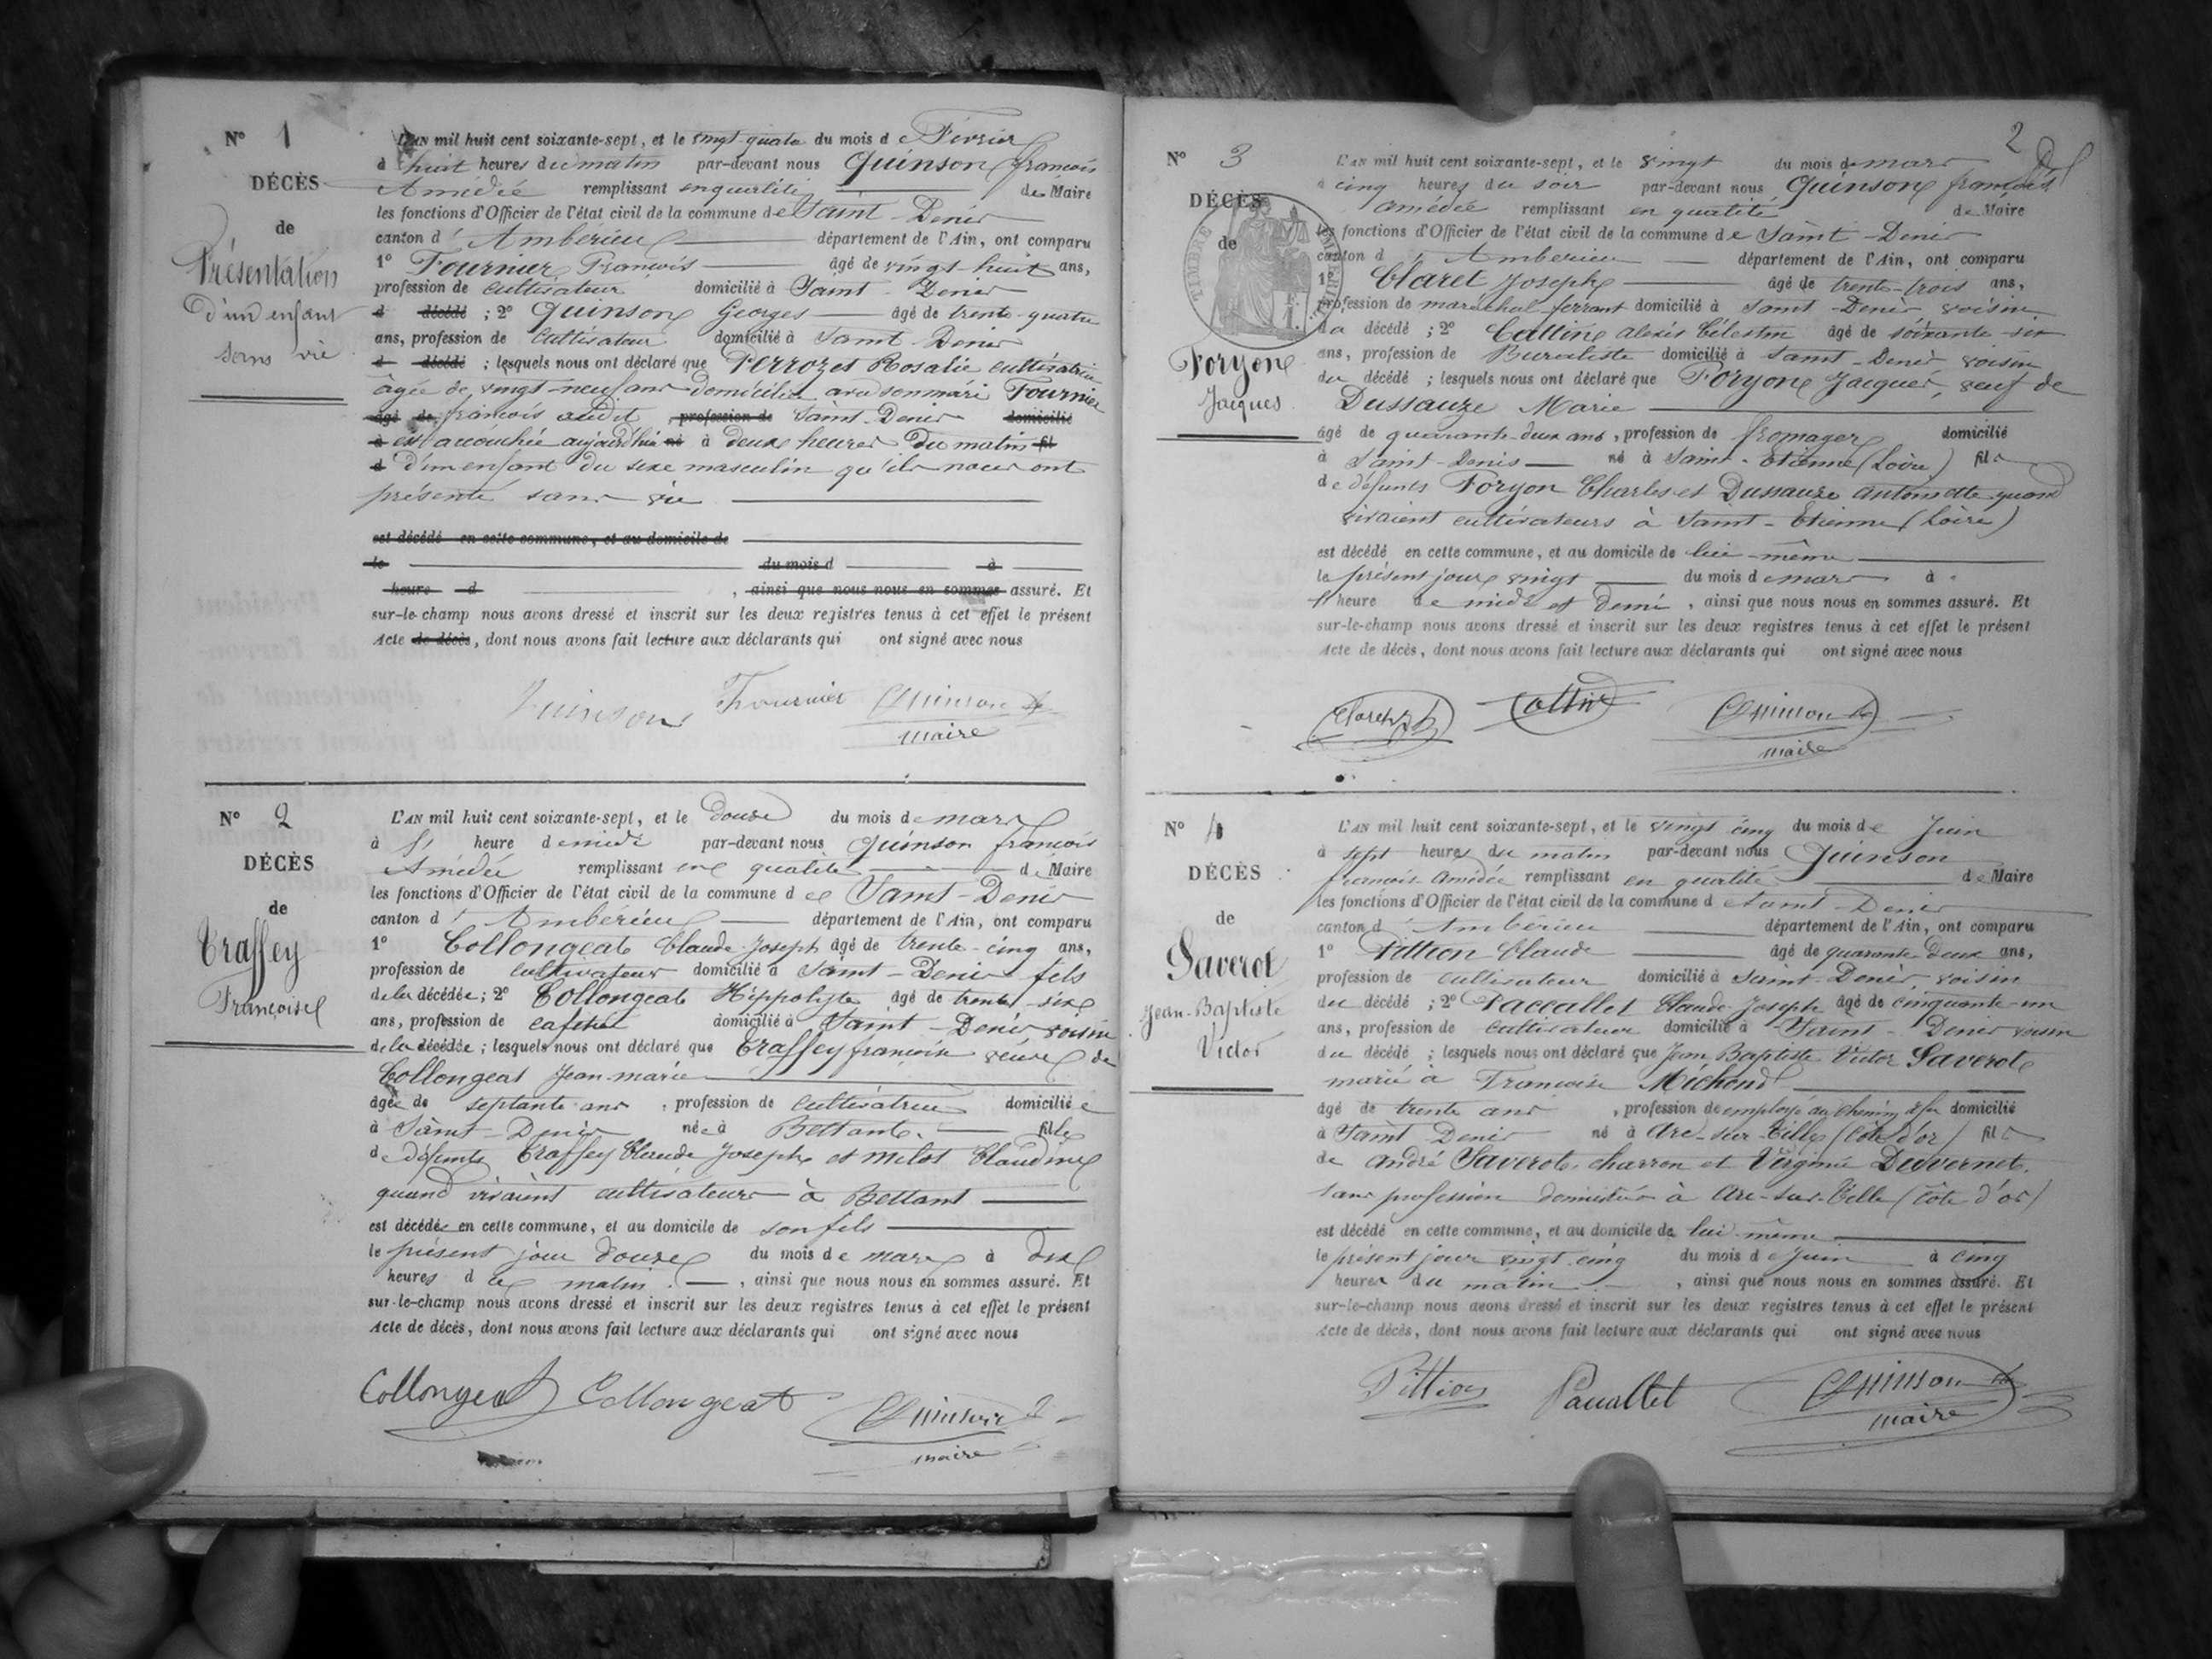 N° 1
DÉCÈS
de
Présentation
d'un enfant
sans vie
L'AN mil huit cent soixante-sept, et le vingt quatre du mois de Février
à huit heures du matin par-devant nous Quinson francois
Amédée remplissant en qualité de Maire
les fonctions d'Officier de l'état civil de la commune de Saint-Denis
canton d'Ambérieu département de l'Ain, ont comparu
1° Fournier Francois âgé de vingt-huit ans,
profession de cultivateur domicilié à Saint-Denis
d décédé ; 2° Quinson Georges âgé de trente-quatre
ans, profession de Cultivateur domicilié à Saint Denis
d décédé ; lesquels nous ont déclaré que Perrozet Rosalie cultivatrice
âgée de vingt-neuf ans domiciliée avec son mari Fournier
âgé de françois audit profession de Saint-Denis domicilié
à est accouchée aujourd'hui né à deux heures du matin fil
d d'un enfant du sexe masculin qu'ils nous ont
présenté sans vie
est décédé en cette commune, et au domicile de
le du mois d à
heure d , ainsi que nous nous en sommes assuré. Et
sur-le-champ nous avons dressé et inscrit sur les deux registres tenus à cet effet le présent
Acte de décès, dont nous avons fait lecture aux déclarants qui ont signé avec nous
Quinson Fournier Quinson
maire
N° 2
DÉCÈS
de
Traffey
Françoise
L'AN mil huit cent soixante-sept, et le douze du mois de mars
à l' heure de midi par-devant nous Quinson francois
Amédée remplissant en qualité de Maire
les fonctions d'Officier de l'état civil de la commune de Saint-Denis
canton d'Ambérieu département de l'Ain, ont comparu
1° Collongeat Claude-Joseph âgé de trente-cinq ans,
profession de cultivateur domicilié à Saint-Denis fils
de la décédée ; 2° Collongeat Hippolyte âgé de trente-six
ans, profession de cafetier domicilié à Saint-Denis voisin
de la décédée ; lesquels nous ont déclaré que Traffey francoise veuve de
Collongeat Jean-marie
âgée de septante ans, profession de cultivatrice domiciliée
à Saint-Denis née à Bettant fille
de défunts Traffey Claude Joseph et milet Claudine
quand vivaient cultivateurs à Bettant
est décédée en cette commune, et au domicile de son fils
le présent jour douze du mois de mars à dix
heures du matin, ainsi que nous nous en sommes assuré. Et
sur-le-champ nous avons dressé et inscrit sur les deux registres tenus à cet effet le présent
Acte de décès, dont nous avons fait lecture aux déclarants qui ont signé avec nous
Collongeat Collongeat Quinson
maire
2
N° 3
DÉCÈS
de
TIMBRE
Foryon
Jacques
L'AN mil huit cent soixante-sept, et le vingt du mois de mars
à cinq heures du soir par-devant nous Quinson francois
amédée remplissant en qualité de Maire
les fonctions d'Officier de l'état civil de la commune de Saint-Denis
canton d'Ambérieu département de l'Ain, ont comparu
1° Claret Joseph âgé de trente-trois ans,
profession de maréchal ferrant domicilié à Saint-Denis voisin
du décédé ; 2° Cattin alexis Célestin âgé de soixante-six
ans, profession de Buraliste domicilié à Saint-Denis voisin
du décédé ; lesquels nous ont déclaré que Foryon Jacques, veuf de
Dussauze Marie
âgé de quarante-deux ans, profession de fromager domicilié
à Saint-Denis né à Saint-Etienne (Loire) fils
de défunts Foryon Charles et Dussauze antoinette quand
vivaient cultivateurs à Saint-Etienne (Loire)
est décédé en cette commune, et au domicile de lui-même
le présent jour vingt du mois de mars à
l'heure de midi et demi, ainsi que nous nous en sommes assuré. Et
sur-le-champ nous avons dressé et inscrit sur les deux registres tenus à cet effet le présent
Acte de décès, dont nous avons fait lecture aux déclarants qui ont signé avec nous
Claret Cattin Quinson
maire
N° 4
DÉCÈS
de
Saverot
Jean-Baptiste
Victor
L'AN mil huit cent soixante-sept, et le vingt cinq du mois de Juin
à sept heures du matin par-devant nous Quinson
francois Amédée remplissant en qualité de Maire
les fonctions d'Officier de l'état civil de la commune de Saint-Denis
canton d'Ambérieu département de l'Ain, ont comparu
1° Pittion Claude âgé de quarante deux ans,
profession de cultivateur domicilié à Saint-Denis, voisin
du décédé ; 2° Paccallet Claude-Joseph âgé de cinquante-un
ans, profession de cultivateur domicilié à Saint-Denis voisin
du décédé ; lesquels nous ont déclaré que Jean Baptiste Victor Saverot
marié à Francoise Michond
âgé de trente ans, profession de employé au chemin de fer domicilié
à Saint Denis né à Arc-sur-Tille (Côte d'or) fils
de André Saverot, charron et Virginie Duvernet,
sans profession domiciliés à Arc-sur-Tille (Côte d'or)
est décédé en cette commune, et au domicile de lui-même
le présent jour vingt cinq du mois de Juin à cinq
heures du matin, ainsi que nous nous en sommes assuré. Et
sur-le-champ nous avons dressé et inscrit sur les deux registres tenus à cet effet le présent
Acte de décès, dont nous avons fait lecture aux déclarants qui ont signé avec nous
Pittion Pacallet Quinson
maire